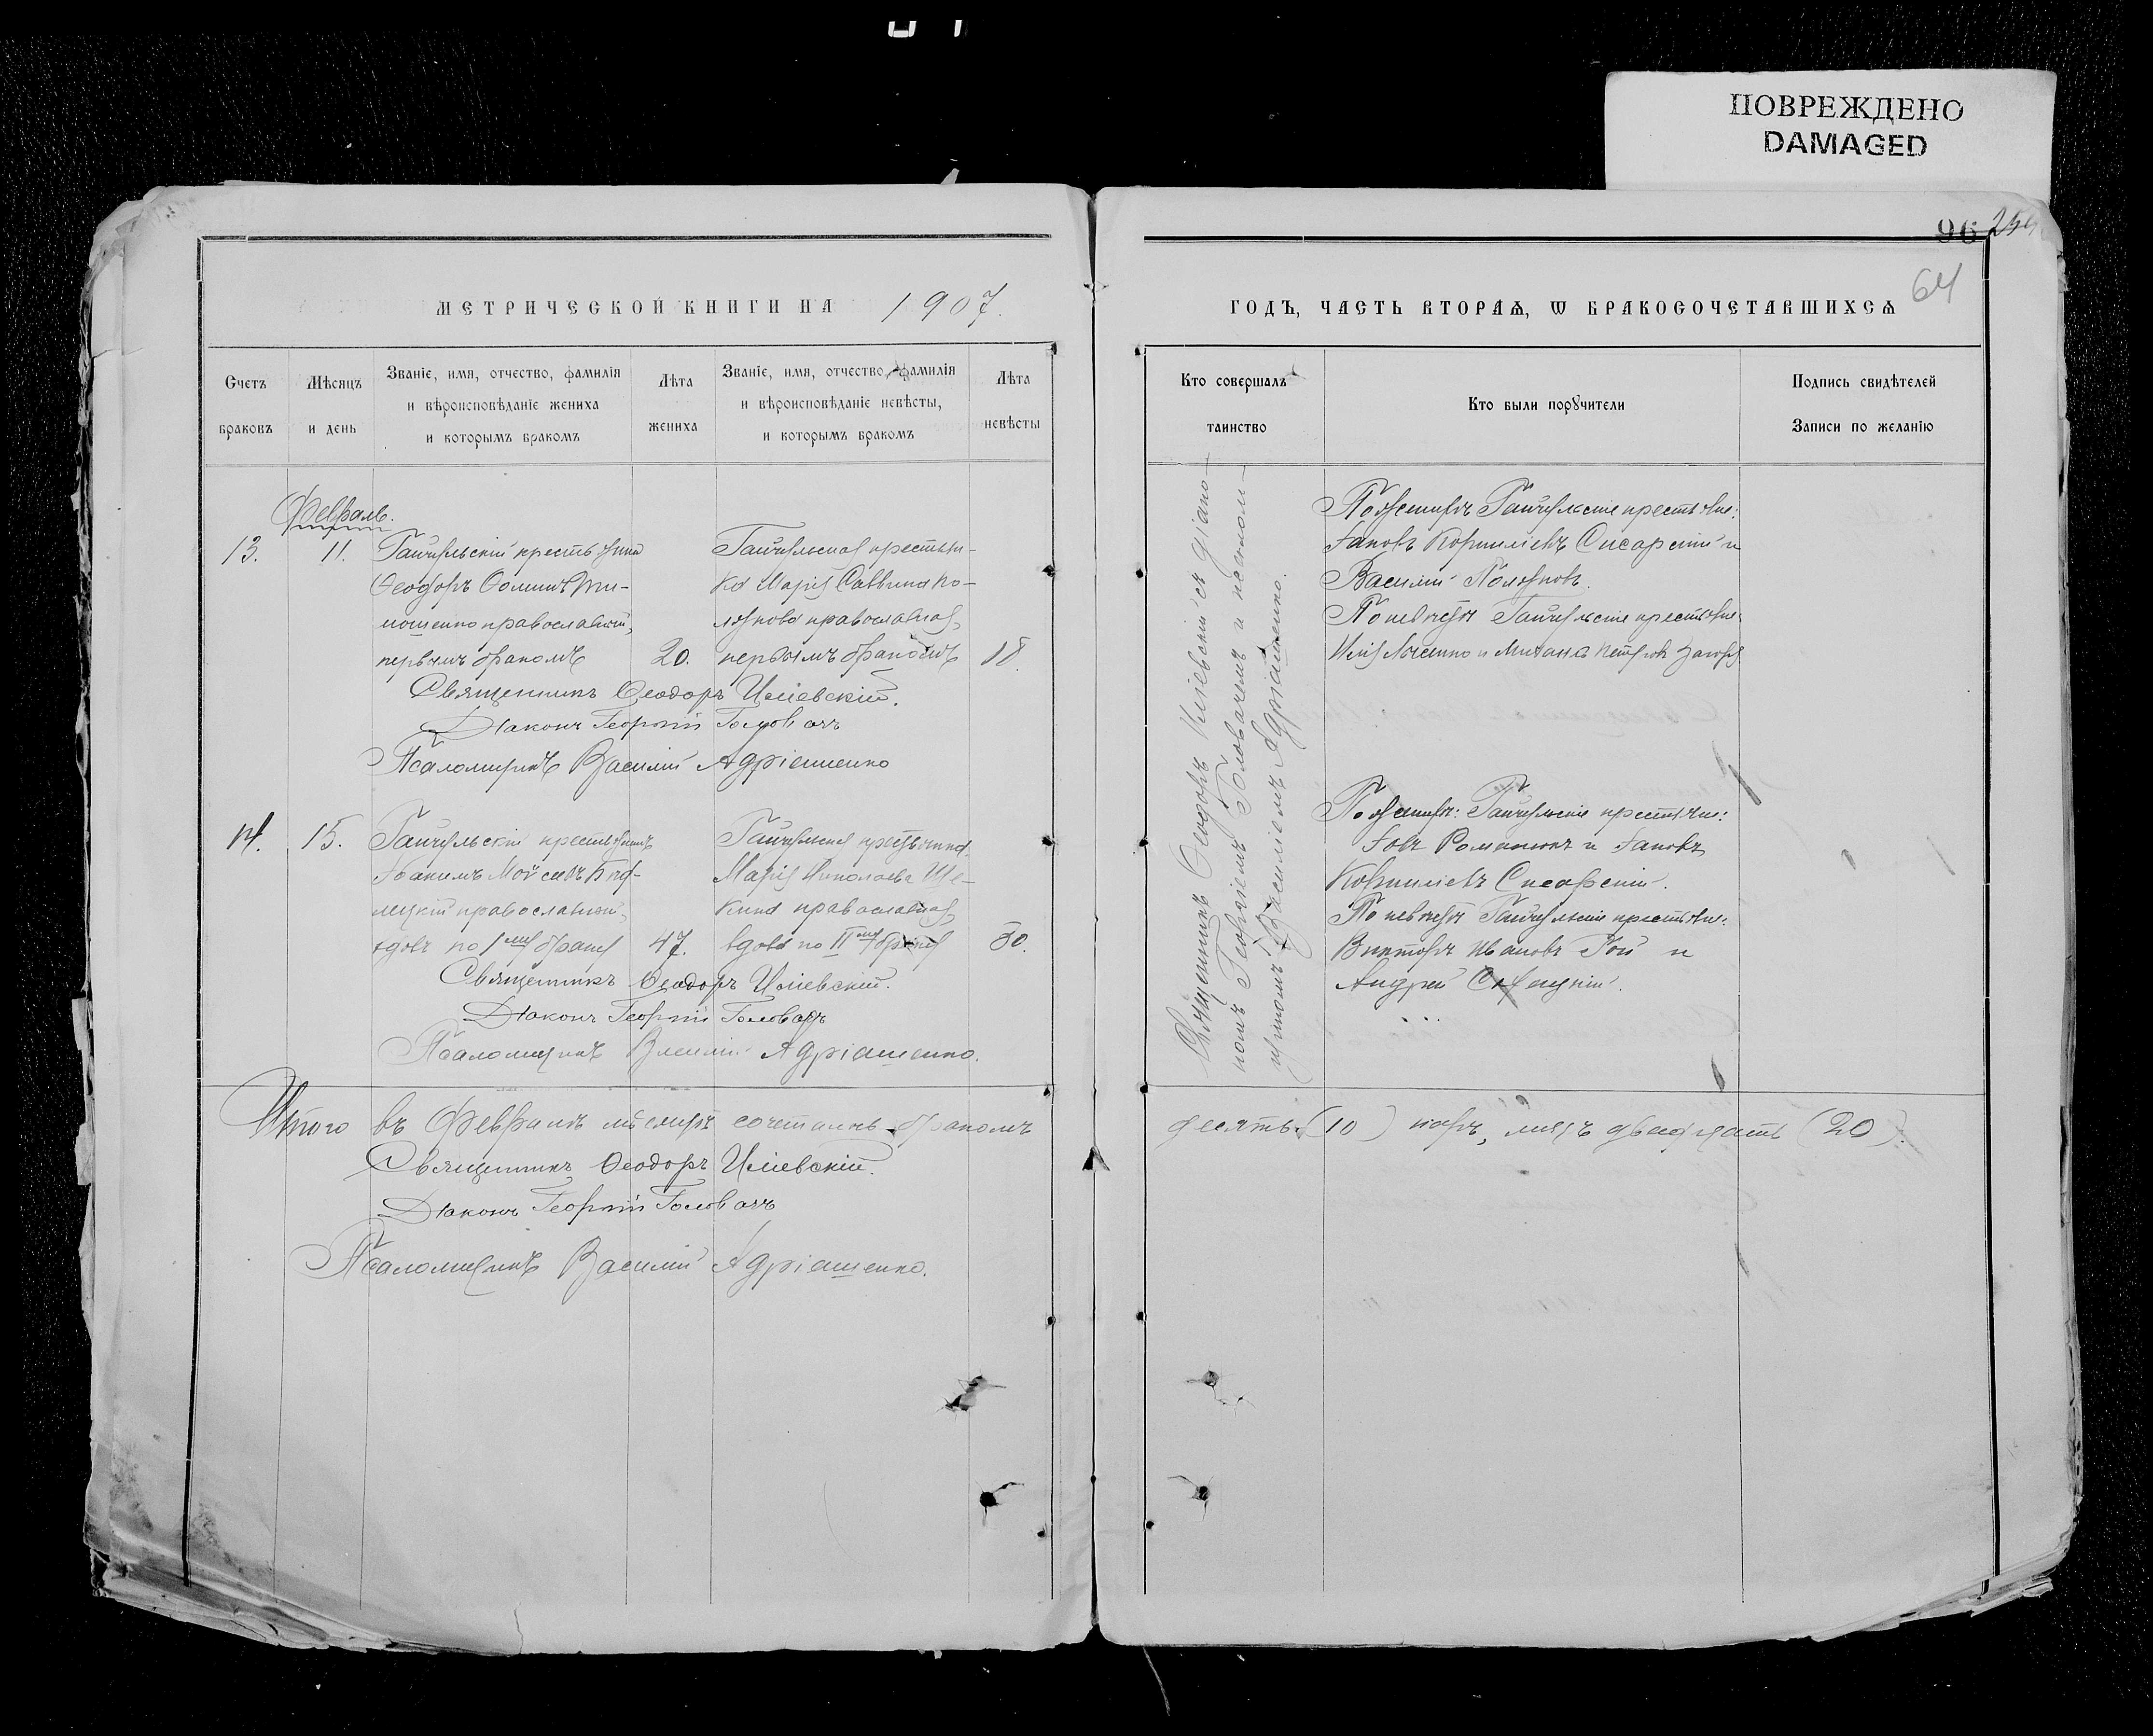 ПОВРЕЖДЕНО
DAMAGED
96
64
МЕТРИЧЕСКОЙ КНИГИ НА 1907.
Счетъ браковъ
Мѣсяцъ и день
Званіе, имя, отчество, фамилія
и вѣроисповѣданіе жениха
и которымъ бракомъ
Лѣта жениха
Званіе, имя, отчество, фамилія
и вѣроисповѣданіе невѣсты,
и которымъ бракомъ
Лѣта невѣсты
Февраль.
13.
11.
Гайчульскій крестьянинъ
Ѳеодоръ Ѳоминъ Ти-
мошенко православный,
первымъ бракомъ
20.
Гайчульская крестьян-
ка Марія Саввина По-
люхова православная,
первымъ бракомъ
18.
Священникъ Ѳеодоръ Иліевскій.
Діаконъ Георгій Головачъ
Псаломщикъ Василій Адріашенко
14.
15.
Гайчульскій крестьянинъ
Іоакимъ Мойсеевъ
православный,
вдовъ по 1мъ бракѣ
47.
Гайчульская крестьянка
Марія Николаева Ще-
кина православная
вдова по II мъ бракѣ
30.
Священникъ Ѳеодоръ Иліевскій.
Діаконъ Георгій Головачъ
Псаломщикъ Василій Адріашенко.
Итого въ Февралѣ мѣсяцѣ сочетано бракомъ
Священникъ Ѳеодоръ Иліевскій.
Діаконъ Георгій Головачъ
Псаломщикъ Василій Адріашенко.
ГОДЪ, ЧАСТЬ ВТОРАѦ, Ѡ БРАКОСОЧЕТАВШИХСѦ
Кто совершалъ таинство
Кто были порꙋчители
Подпись свидѣтелей
Записи по желанію
Священникъ Ѳеодоръ Иліевскій съ діако-
номъ Георгіемъ Головачемъ и псалом-
щикомъ Василіемъ Адріашенко.
По женихѣ Гайчульскіе крестьяне:
Іаковъ Корниліевъ Снсарскій и
Василій
По невѣстѣ Гайчульскіе крестьяне:
Илія и Михаилъ Петровъ
По женихѣ: Гайчульскіе крестьяне:
Іовъ и Іаковъ
Корниліевъ
По невѣстѣ Гайчульскіе крестьяне:
Викторъ Ивановъ Рой и
Андрей
десять (10) паръ, лицъ двадцать (20).